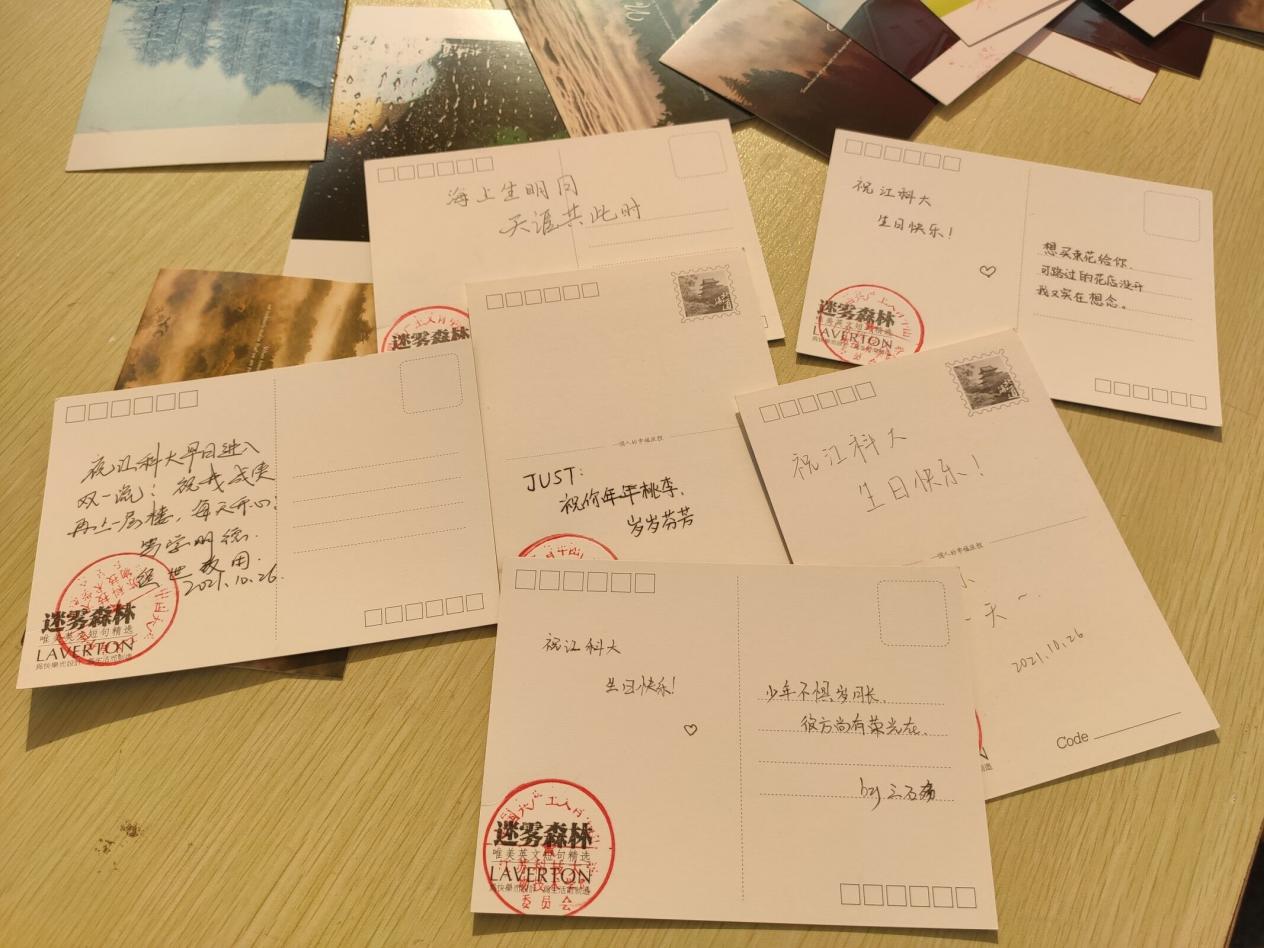 海上生明月
天涯共此时
迷雾森林
祝江科大
生日快乐!
♡
想买束花给你.
可路过的花店没开
我又实在想念。
迷雾森林
LAVERTON
祝江科大早日进入
双一流! 祝我成绩
再上一层楼, 每天开心!
笃学明德.
经世致用.
2021.10.26.
迷雾森林
唯美英文短句精选
LAVERTON
一個人的幸福旅程
JUST:
祝你年年桃李,
岁岁芬芳
祝江科大
生日快乐!
一個人的幸福旅程
天~.
2021.10.26
Code
祝江科大
生日快乐!
♡
少年不惧岁月长,
彼方尚有荣光在.
迷雾森林
唯美英文短句精选
LAVERTON
江苏科技大
委员会